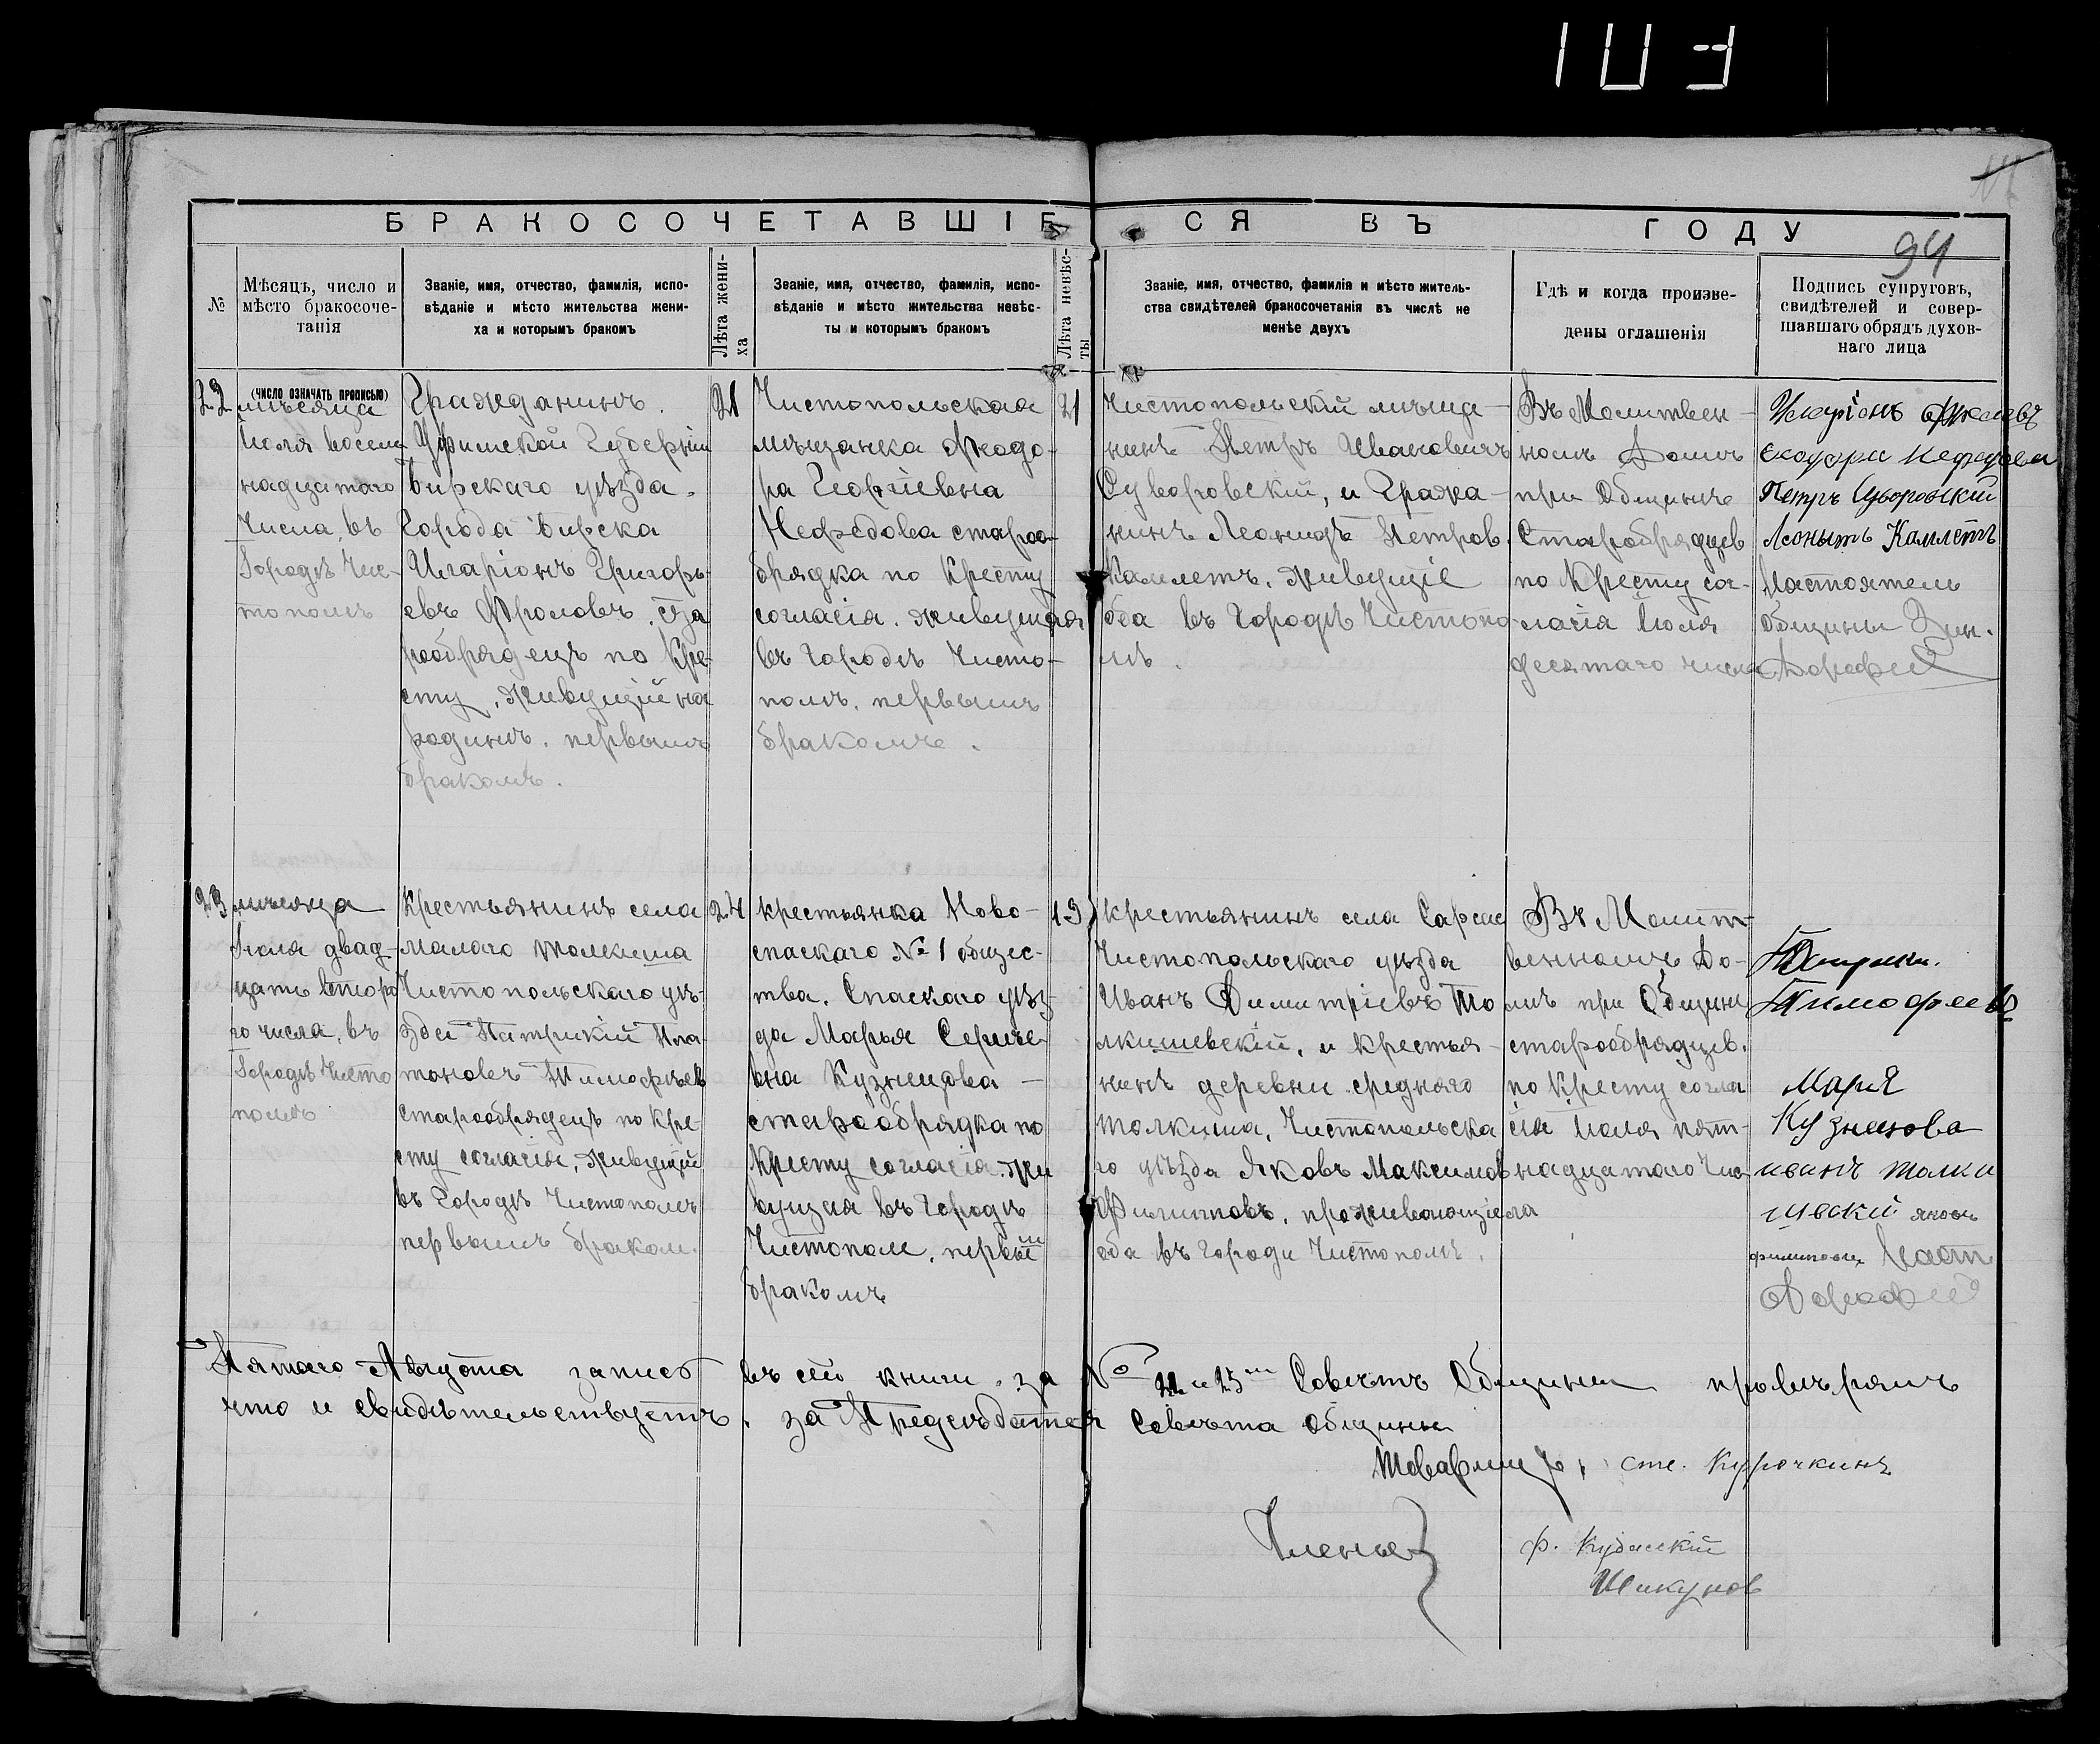 103
94
БРАКОСОЧЕТАВШІЕСЯ ВЪ ГОДУ
№
Мѣсяцъ, число и
мѣсто бракосоче-
танія
Званіе, имя, отчество, фамилія, испо-
вѣданіе и мѣсто жительства жени-
ха и которымъ бракомъ
Лѣта жени-
ха
Званіе, имя, отчество, фамилія, испо-
вѣданіе и мѣсто жительства невѣс-
ты и которымъ бракомъ
Лѣта невѣс-
ты
Званіе, имя, отчество, фамилія и мѣсто житель-
ства свидѣтелей бракосочетанія въ числѣ не
менѣе двухъ
Гдѣ и когда произве-
дены оглашенія
Подпись супруговъ,
свидѣтелей и совер-
шавшаго обрядъ духов-
наго лица
(число означать прописью)
22
мѣсяца
Іюля восем
надцатого
Числа, въ
Городѣ Чис-
тополѣ
Гражданинъ.
Уфимской Губерніи
Бирскаго уѣзда.
Города Бирска
Иларіонъ Григорь-
евъ Фроловъ. Ста
рообрядецъ по Кре-
сту, живущій на
родинѣ. первымъ
бракомъ.
21
Чистопольская
мѣщанка Феодо-
ра Георгіевна
Нефедова староо-
брядка по Кресту
согласія. живущая
въ городѣ Чисто-
полѣ. первымъ
бракомъ.
21
Чистопольскій мѣща-
нинъ Петръ Ивановичъ
Суворовскій, и Гражда-
нинъ Леонидъ Петров.
Камлетъ. живущіе
оба въ Городѣ Чистопо-
лѣ.
Въ Молитвен-
номъ Домѣ
при Общинѣ
Старобрядцев
по Кресту со-
гласія Іюля
десятаго числа
Иларіонъ Фролавъ
Петръ Суворовскій
Леонытъ Камлетъ
Настоятель
общины
Дорофей
23
мѣсяца
Іюля двад-
цать второ
го числа, въ
Городѣ Чисто
полѣ
Крестьянинъ села
Малаго Толкиша
Чистопольскаго уѣ-
зда Патрикій Пла-
тоновъ Тимофѣев
старообрядецъ по Кре-
сту согласія, живущій
въ Городѣ Чистополѣ
первымъ браком.
24
крестьянка Ново-
спаскаго № 1 общес-
тва. Спаскаго уѣз-
да Марья Сергѣе-
вна Кузнецова —
старообрядка по
Кресту согласія. жи
вущая въ Городѣ
Чистополе, первым
бракомъ
19
крестьянинъ села Сарсас
Чистопольскаго уѣзда
Иванъ Димитріевъ То
лкишевскій, и крестья-
нинъ деревни средняго
Толкиша, Чистопольска
го уѣзда Яковъ Максимов
Филипповъ, проживающіе
оба въ городи Чистополѣ.
Въ Молит-
венномъ До-
мѣ при Общини
старообрядцев.
по Кресту согла
сія Іюля пят-
надцатого чис
ла
Тимофеевъ
Мария
Кузнецова
иванъ толки
шевский яковъ
филиповъ Наст
Дорофей
Пятаго Августа запись въ сей книги за № 22 и 23 Совѣтъ Общины провѣрялъ
что и свидѣтельствуетъ. за Предсѣдателя Совѣта общины
Товарищъ, сте. Курочкинъ
Члены
Ф. Кудасскій
Шикунов